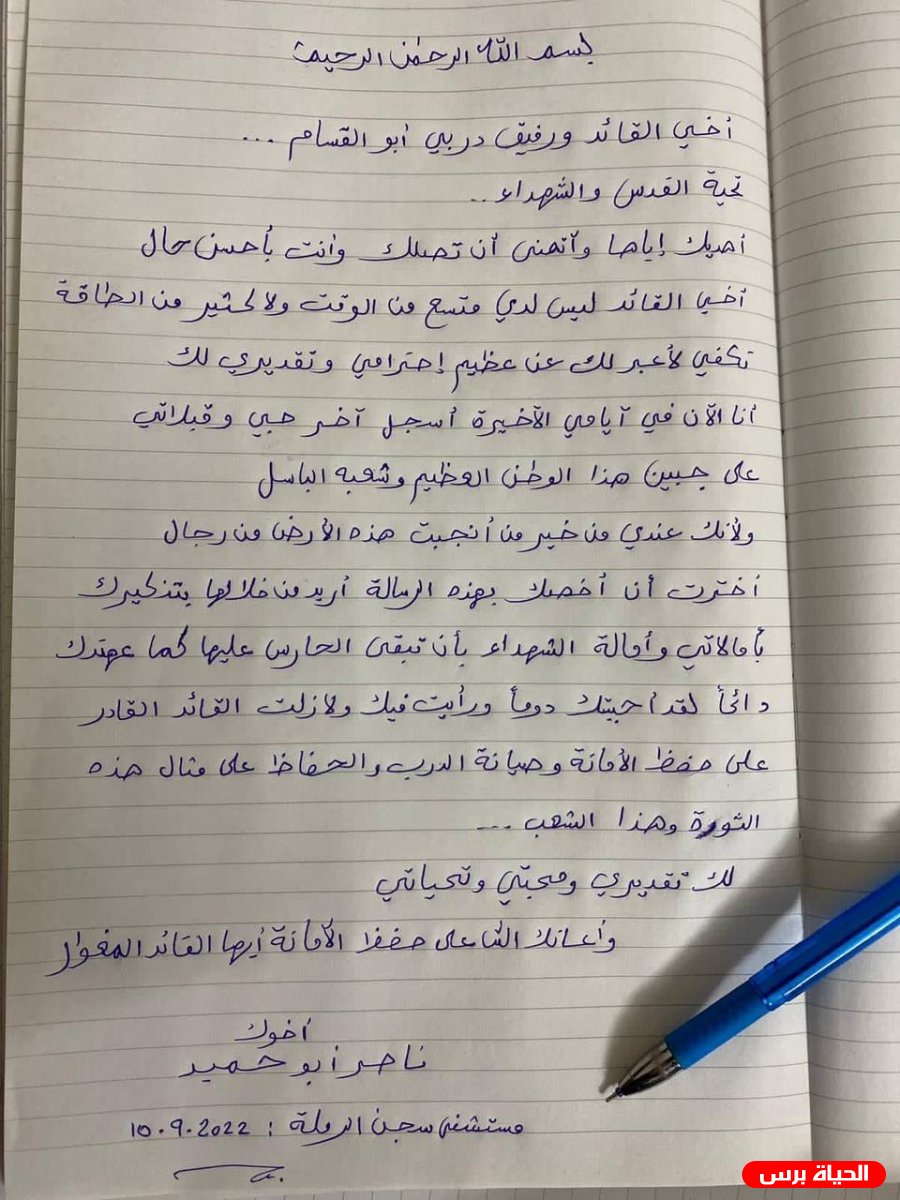 بسم الله الرحمن الرحيم
أخي القائد ورفيق دربي أبو القسام ...
تحية القدس والشهداء ..
أهديك إياها وأتمنى أن تصلك وأنت بأحسن حال
أخي القائد ليس لدي متسع من الوقت ولا كثير من الطاقة
تكفي لأعبر لك عن عظيم إحترامي وتقديري لك
أنا الآن في أيامي الأخيرة أسجل آخر حبي وقبلاتي
على جبين هذا الوطن العظيم وشعبه الباسل
ولأنك عندي من خير من أنجبت هذه الأرض من رجال
أخترت أن أخصك بهذه الرسالة أريد من خلالها بتذكيرك
وأمانة الشهداء بأن تبقى الحارس عليها كما عهدتك
دائماً لقد أحببتك دوماً ورأيت فيك ولازلت القائد القادر
على حفظ الأمانة وصيانة الدرب والحفاظ على هذه
الثورة وهذا الشعب ...
لك تقديري ومحبتي وتحياتي
وأعانك الله على حفظ الأمانة أيها القائد المغوار
أخوك
ناصر أبو حميد
مستشفى سجن الرملة : 10.9.2022
الحياة برس